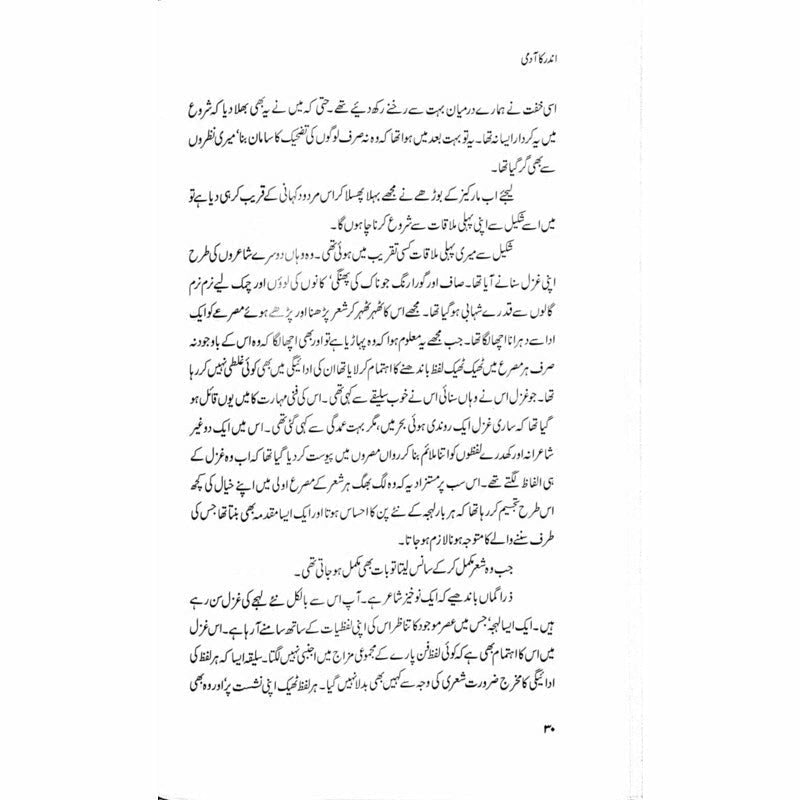 اندر کا آدمی
اسی خفت نے ہمارے درمیان بہت سے رخنے رکھ دیئے تھے۔ حتیٰ کہ میں نے یہ بھی بھلا دیا کہ شروع
میں یہ کردار ایسا نہ تھا۔ یہ تو بہت بعد میں ہوا تھا کہ وہ نہ صرف لوگوں کی تضحیک کا سامان بنا، میری نظروں
سے بھی گر گیا تھا۔
لیجئے اب مارکیز کے بوڑھے نے مجھے بہلا پھسلا کر اس مردود کہانی کے قریب کر ہی دیا ہے تو
میں اسے شکیل سے اپنی پہلی ملاقات سے شروع کرنا چاہوں گا۔
شکیل سے میری پہلی ملاقات کسی تقریب میں ہوئی تھی۔ وہ وہاں دوسرے شاعروں کی طرح
اپنی غزل سنانے آیا تھا۔ صاف اور گورا رنگ جو ناک کی پھنگی، کانوں کی لوؤں اور چمک لیے نرم نرم
گالوں سے قدرے شہابی ہو گیا تھا۔ مجھے اس کا ٹھہر ٹھہر کر شعر پڑھنا اور پڑھے ہوئے مصرعے کو ایک
ادا سے دہرانا اچھا لگا تھا۔ جب مجھے یہ معلوم ہوا کہ وہ پہاڑیا ہے تو اور بھی اچھا لگا کہ وہ اس کے باوجود نہ
صرف ہر مصرع میں ٹھیک ٹھیک لفظ باندھنے کا اہتمام کر لایا تھا ان کی ادائیگی میں بھی کوئی غلطی نہیں کر رہا
تھا۔ جو غزل اس نے وہاں سنائی اس نے خوب سلیقے سے کہی تھی۔ اس کی فنی مہارت کا میں یوں قائل ہو
گیا تھا کہ ساری غزل ایک روندی ہوئی بحر میں، مگر بہت عمدگی سے کہی گئی تھی۔ اس میں ایک دو غیر
شاعرانہ اور کھدرے لفظوں کو اتنا ملائم بنا کر رواں مصروں میں پیوست کر دیا گیا تھا کہ اب وہ غزل کے
ہی الفاظ لگتے تھے۔ اس سب پر مستزاد یہ کہ وہ لگ بھگ ہر شعر کے مصرع اولیٰ میں اپنے خیال کی کچھ
اس طرح تجسیم کر رہا تھا کہ ہر بار لہجہ کے نئے پن کا احساس ہوتا اور ایک ایسا مقدمہ بھی بنتا تھا جس کی
طرف سننے والے کا متوجہ ہونا لازم ہو جاتا۔
جب وہ شعر مکمل کر کے سانس لیتا تو بات بھی مکمل ہو جاتی تھی۔
ذرا گماں باندھیے کہ ایک نوخیز شاعر ہے۔ آپ اس سے بالکل نئے لہجے کی غزل سن رہے
ہیں۔ ایک ایسا لہجہ، جس میں عصر موجود کا تناظر اس کی اپنی لفظیات کے ساتھ سامنے آ رہا ہے۔ اس غزل
میں اس کا اہتمام بھی ہے کہ کوئی لفظ فن پارے کے مجموعی مزاج میں اجنبی نہیں لگتا۔ سلیقہ ایسا کہ ہر لفظ کی
ادائیگی کا مخرج ضرورت شعری کی وجہ سے کہیں بھی بدلا نہیں گیا۔ ہر لفظ ٹھیک اپنی نشست پر، اور وہ بھی
۳۰